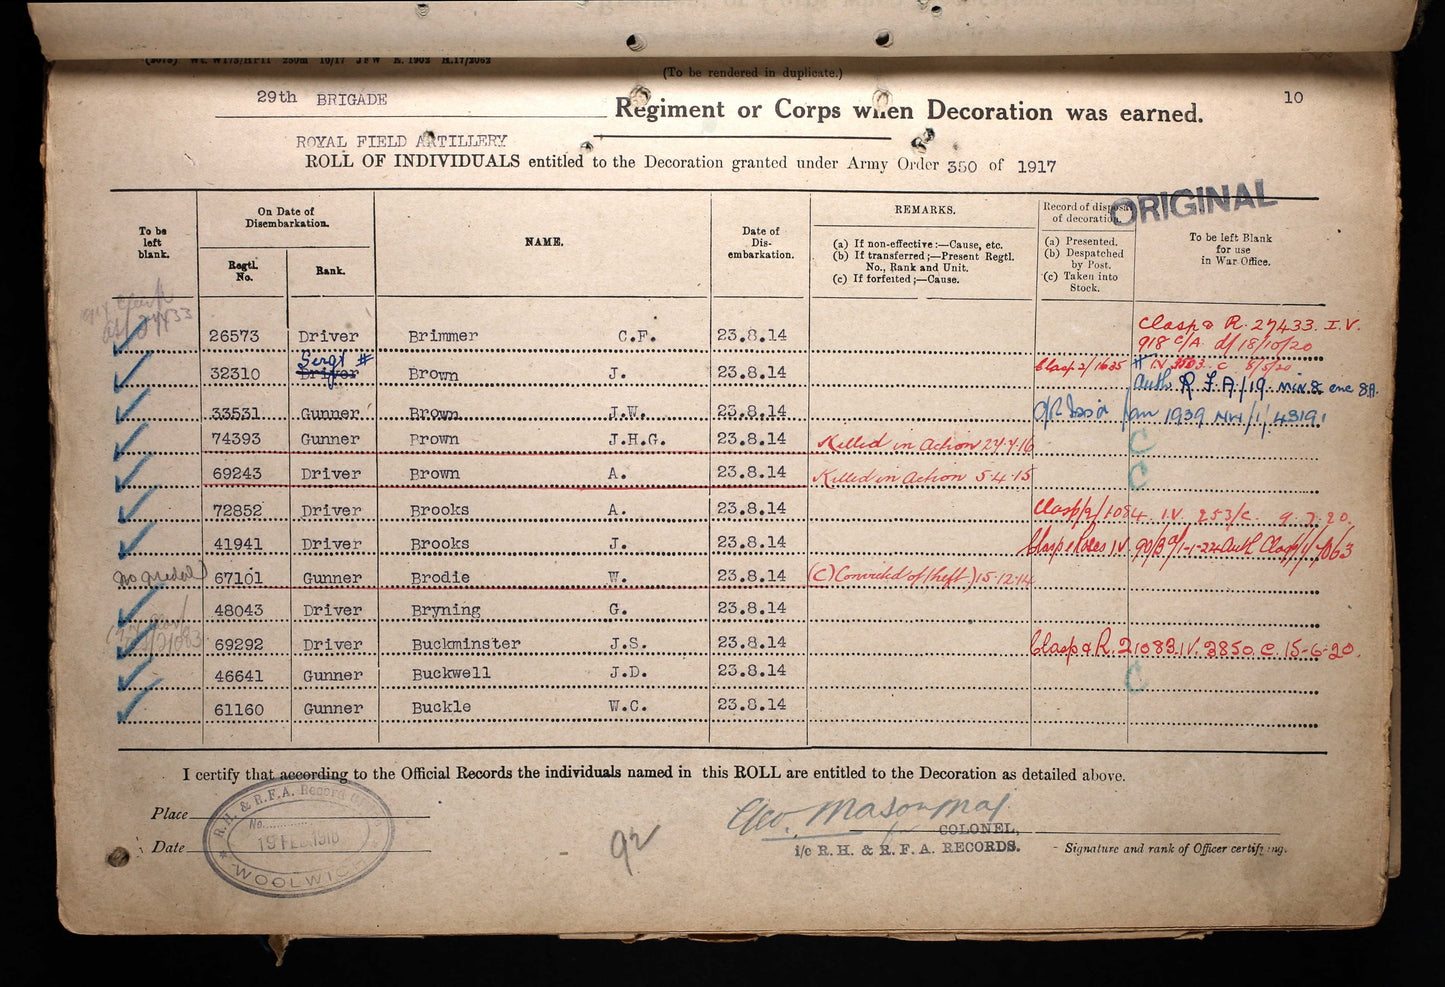 (To be rendered in duplicate.)
29th BRIGADE
Regiment or Corps when Decoration was earned.
10
ROYAL FIELD ARTILLERY
ROLL OF INDIVIDUALS entitled to the Decoration granted under Army Order 350 of 1917
ORIGINAL
To be left blank.
On Date of Disembarkation.
Regtl. No.
Rank.
NAME.
Date of Dis-embarkation.
REMARKS.
(a) If non-effective:—Cause, etc.
(b) If transferred;—Present Regtl. No., Rank and Unit.
(c) If forfeited;—Cause.
Record of disposal of decoration.
(a) Presented.
(b) Despatched by Post.
(c) Taken into Stock.
To be left Blank for use in War Office.
26573 Driver Brimmer C.F. 23.8.14 Clasp & R. 27433. I.V. 918 C/A. d/18/10/20
32310 Driver Sergt # Brown J. 23.8.14 Clasp 2/1635 # I.V. 3503. C 8/5/20
Auth R F A/19
33531 Gunner Brown J.W. 23.8.14 1939 NW/1/43191
74393 Gunner Brown J.H.G. 23.8.14 Killed in Action C
69243 Driver Brown A. 23.8.14 Killed in Action 5-4-15 C
72852 Driver Brooks A. 23.8.14 I.V. 253/C. 9.7.20.
41941 Driver Brooks J. 23.8.14 Clasp & Roses I.V.
No medal 67101 Gunner Brodie W. 23.8.14 (C) Convicted of theft) 15-12-14
48043 Driver Bryning G. 23.8.14
69292 Driver Buckminster J.S. 23.8.14 Clasp & R. 21083 I.V. 3850. C. 15-6-20.
46641 Gunner Buckwell J.D. 23.8.14 C
61160 Gunner Buckle W.C. 23.8.14
I certify that according to the Official Records the individuals named in this ROLL are entitled to the Decoration as detailed above.
Place
Date
R.H. & R.F.A. Record Office
No.
19 FEB. 1918
WOOLWICH
92
Geo. Mason Maj.
for COLONEL,
i/c R. H. & R. F. A. RECORDS.
Signature and rank of Officer certifying.